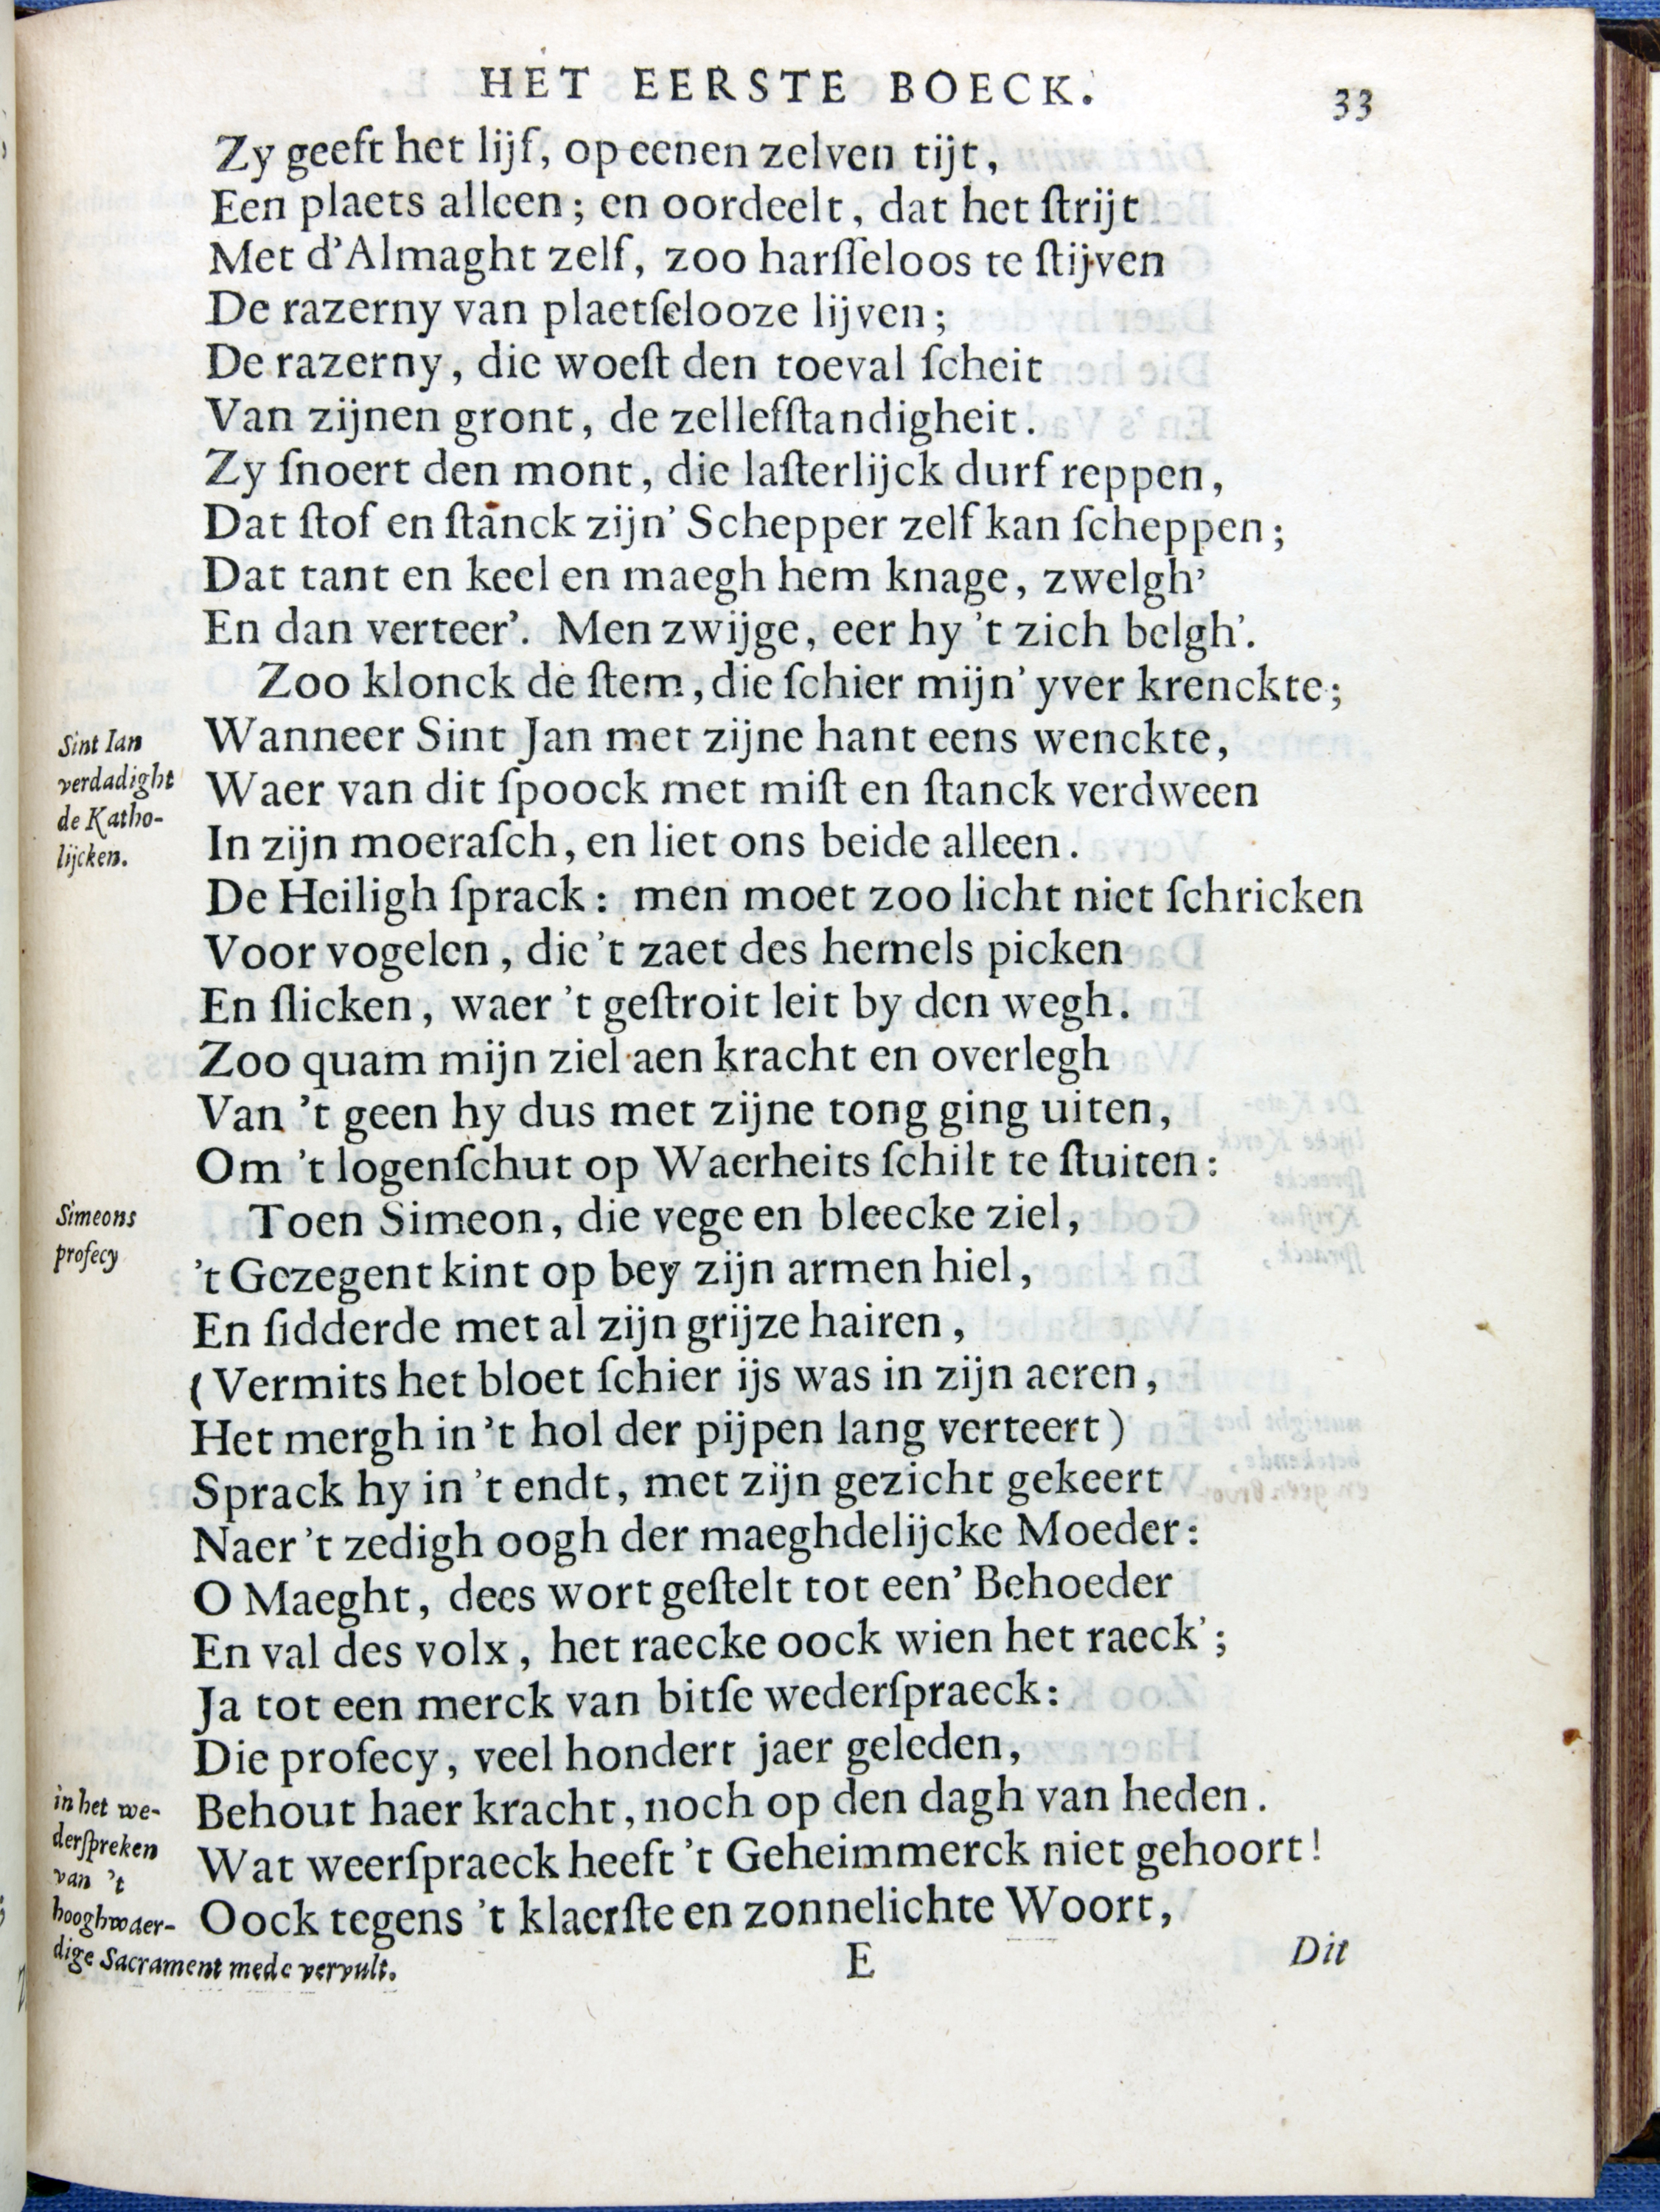 HET EERSTE BOECK.
33
Zy geeft het lijf, op eenen zelven tijt,
Een plaets alleen; en oordeelt, dat het ſtrijt
Met d'Almaght zelf, zoo harſſeloos te ſtijven
De razerny van plaetſelooze lijven;
De razerny, die woeſt den toeval ſcheit
Van zijnen gront, de zellefſtandigheit.
Zy ſnoert den mont, die laſterlijck durf reppen,
Dat ſtof en ſtanck zijn' Schepper zelf kan ſcheppen;
Dat tant en keel en maegh hem knage, zwelgh'
En dan verteer'. Men zwijge, eer hy 't zich belgh'.
Zoo klonck de ſtem, die ſchier mijn' yver krenckte;
Sint Ian
verdadight
de Katho-
lijcken.
Wanneer Sint Jan met zijne hant eens wenckte,
Waer van dit ſpoock met miſt en ſtanck verdween
In zijn moeraſch, en liet ons beide alleen.
De Heiligh ſprack: men moet zoo licht niet ſchricken
Voor vogelen, die 't zaet des hemels picken
En ſlicken, waer 't geſtroit leit by den wegh.
Zoo quam mijn ziel aen kracht en overlegh
Van 't geen hy dus met zijne tong ging uiten,
Om 't logenſchut op Waerheits ſchilt te ſtuiten:
Simeons
profecy
Toen Simeon, die vege en bleecke ziel,
't Gezegent kint op bey zijn armen hiel,
En ſidderde met al zijn grijze hairen,
(Vermits het bloet ſchier ijs was in zijn aeren,
Het mergh in 't hol der pijpen lang verteert)
Sprack hy in 't endt, met zijn gezicht gekeert
Naer 't zedigh oogh der maeghdelijcke Moeder:
O Maeght, dees wort geſtelt tot een' Behoeder
En val des volx, het raecke oock wien het raeck';
Ja tot een merck van bitſe wederſpraeck:
Die profecy, veel hondert jaer geleden,
in het we-
derſpreken
van 't
hooghwaer-
dige Sacrament mede vervult.
Behout haer kracht, noch op den dagh van heden.
Wat weerſpraeck heeft 't Geheimmerck niet gehoort!
Oock tegens 't klaerſte en zonnelichte Woort,
E
Dit